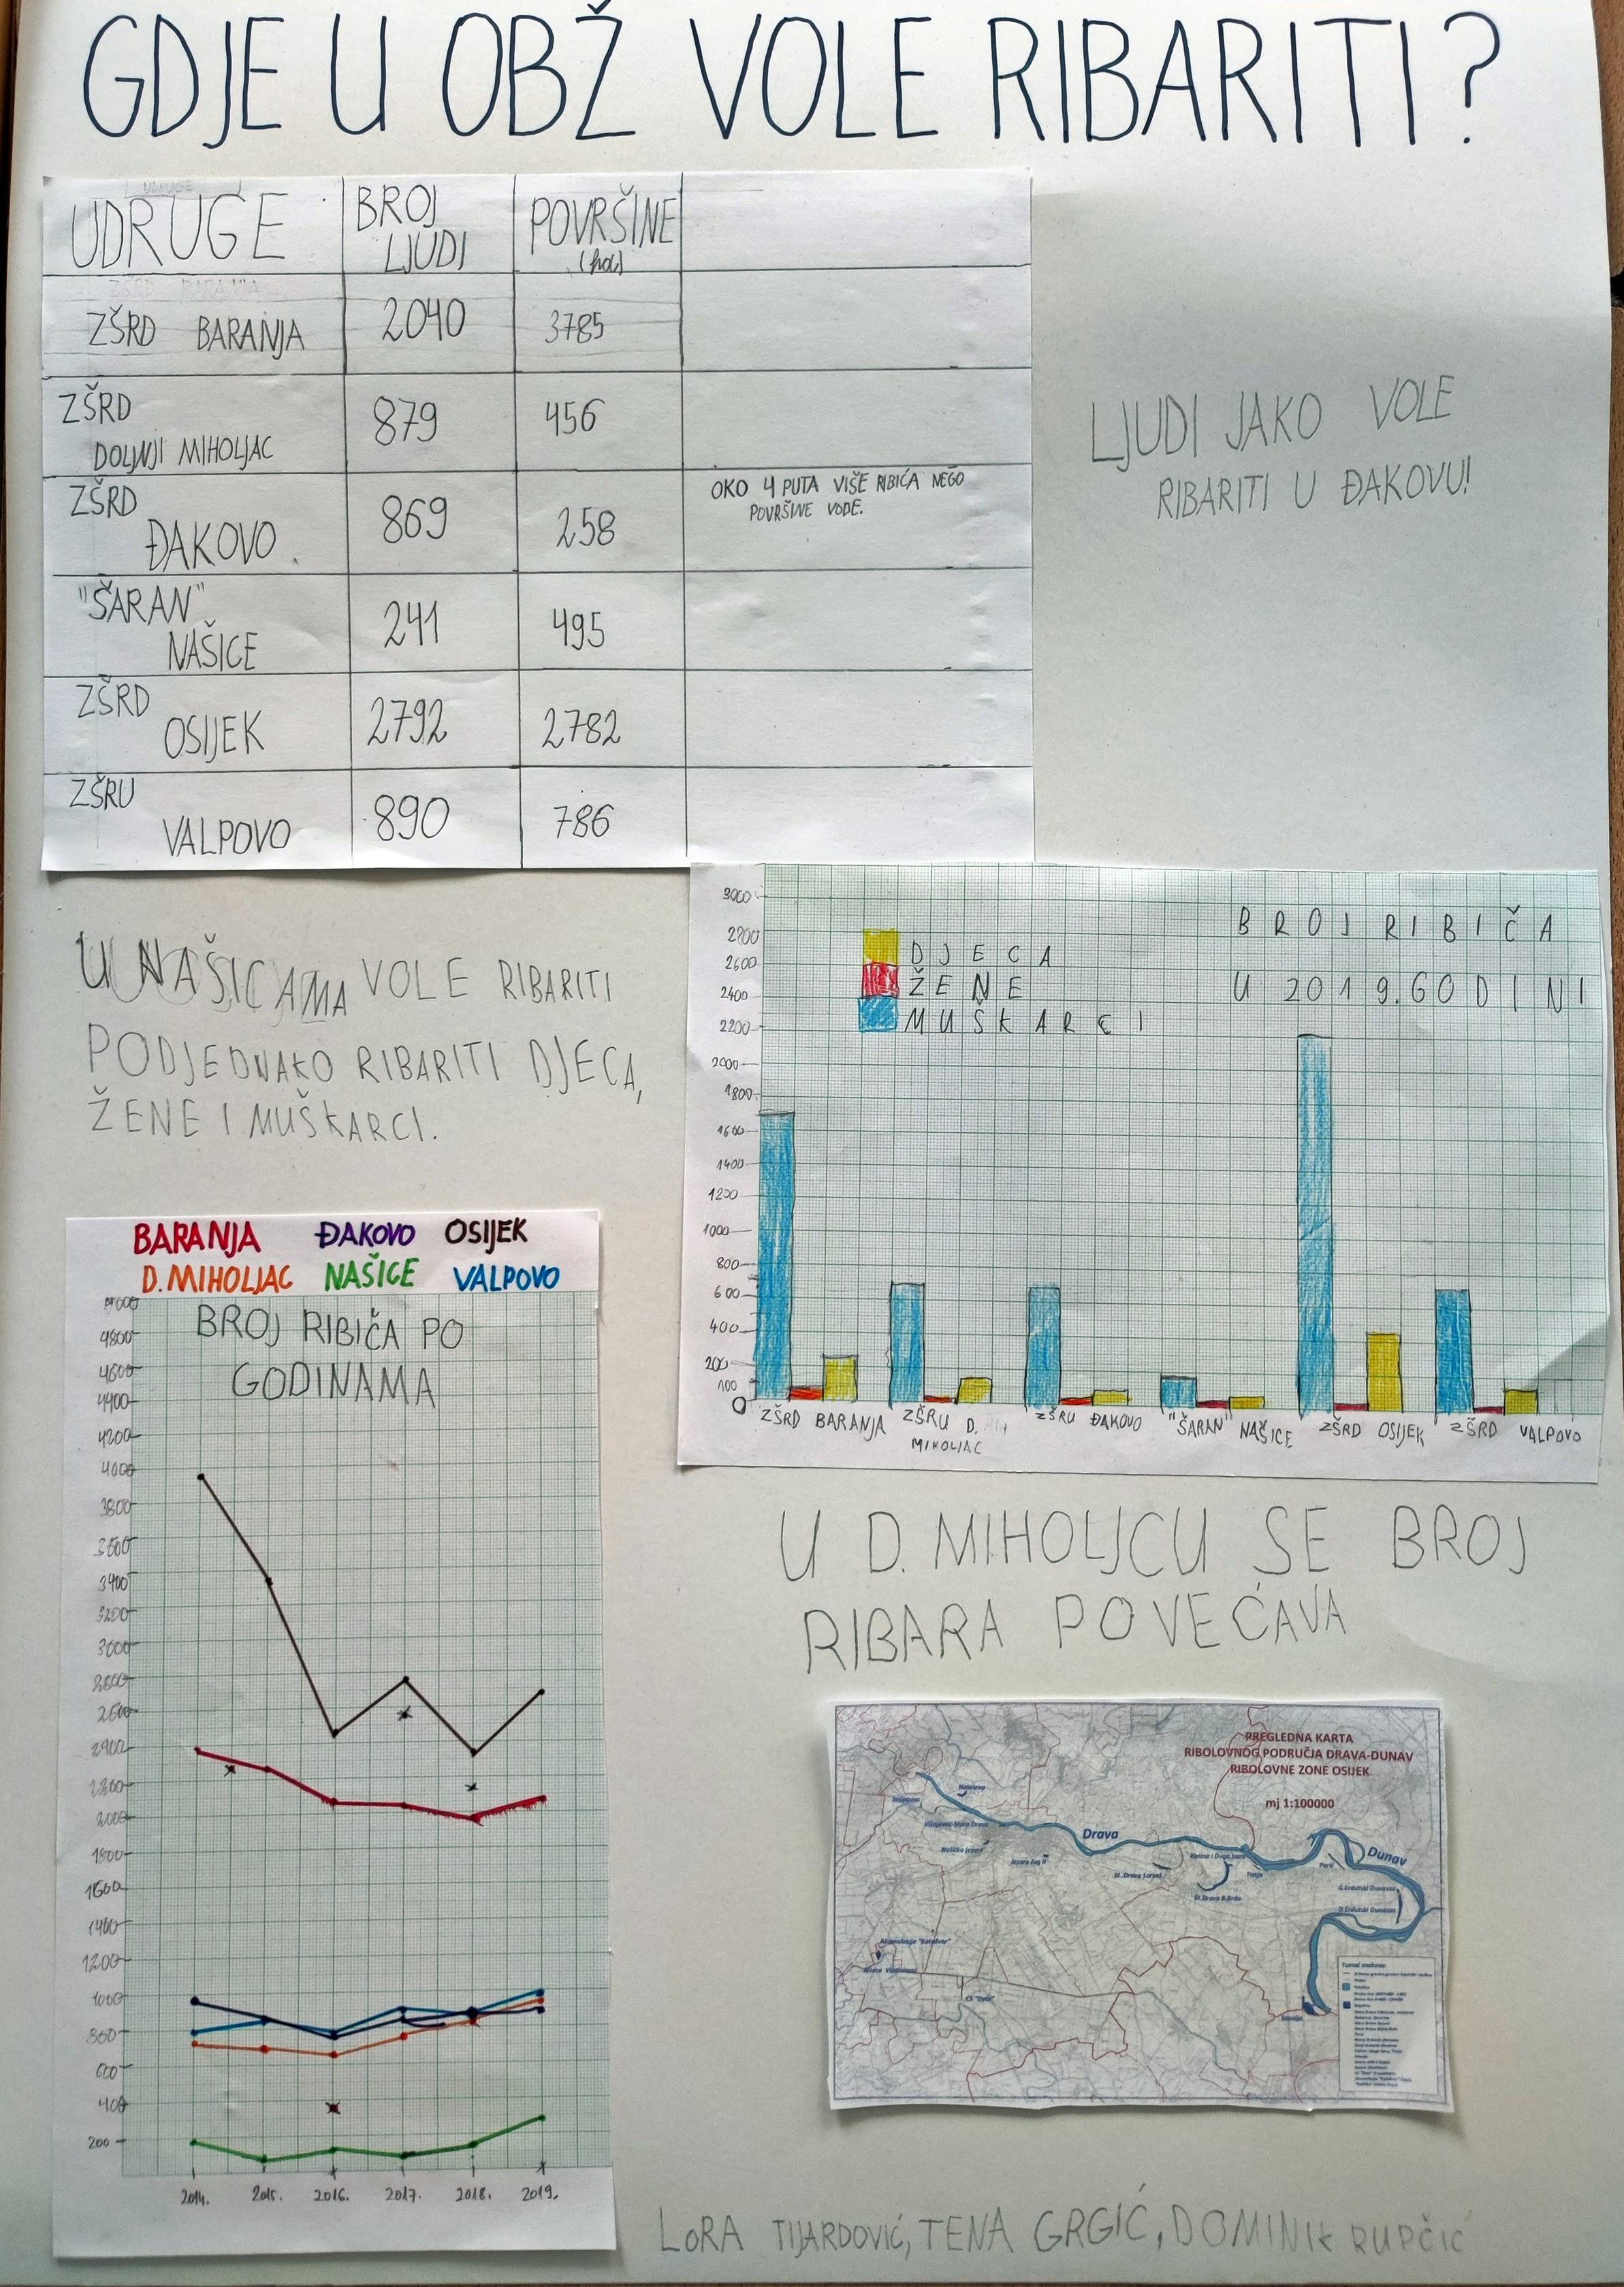 GDJE U OBŽ VOLE RIBARITI?
UDRUGE BROJ LJUDI POVRŠINE (ha)
ZŠRD BARANJA 2040 3785
ZŠRD DOLJNJI MIHOLJAC 879 456
ZŠRD ĐAKOVO 869 258 OKO 4 PUTA VIŠE RIBIĆA NEGO POVRŠINE VODE.
"ŠARAN" NAŠICE 241 495
ZŠRD OSIJEK 2792 2782
ZŠRU VALPOVO 890 786
LJUDI JAKO VOLE
RIBARITI U ĐAKOVU!
U NAŠICAMA VOLE RIBARITI
PODJEDNAKO RIBARITI DJECA,
ŽENE I MUŠKARCI.
BROJ RIBIČA
U 2019. GODINI
DJECA
ŽENE
MUŠKARCI
3000
2800
2600
2400
2200
2000
1800
1600
1400
1200
1000
800
600
400
200
100
0
ZŠRD BARANJA
ZŠRU D.
MIHOLJAC
ZŠRU ĐAKOVO
"ŠARAN" NAŠICE
ZŠRD OSIJEK
ZŠRD VALPOVO
BARANJA ĐAKOVO OSIJEK
D. MIHOLJAC NAŠICE VALPOVO
BROJ RIBIČA PO
GODINAMA
4800
4600
4400
4200
4000
3800
3600
3400
3200
3000
2800
2600
2400
2200
2000
1800
1600
1400
1200
1000
800
600
400
200
2014. 2015. 2016. 2017. 2018. 2019.
U D. MIHOLJCU SE BROJ
RIBARA POVEĆAVA
PREGLEDNA KARTA
RIBOLOVNOG PODRUČJA DRAVA-DUNAV
RIBOLOVNE ZONE OSIJEK
mj 1:100000
Drava
Dunav
LORA TIJARDOVIĆ, TENA GRGIĆ, DOMINIK RUPČIĆ